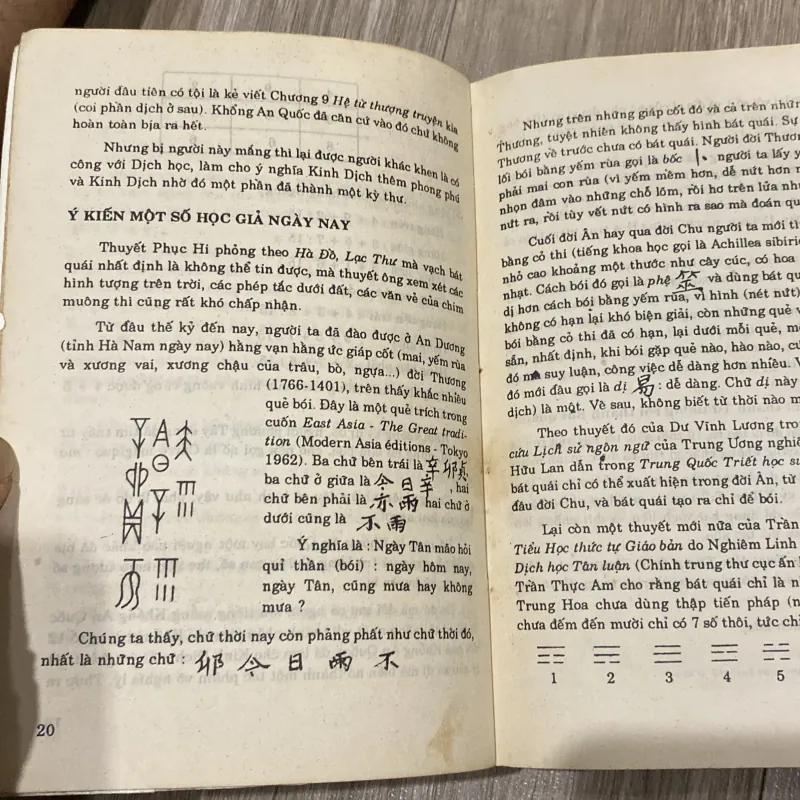 người đầu tiên có tội là kẻ viết Chương 9 Hệ từ thượng truyện kia
(coi phần dịch ở sau). Khổng An Quốc đã căn cứ vào đó chứ không
hoàn toàn bịa ra hết.
Nhưng bị người này mắng thì lại được người khác khen là có
công với Dịch học, làm cho ý nghĩa Kinh Dịch thêm phong phú
và Kinh Dịch nhờ đó một phần đã thành một kỳ thư.
Ý KIẾN MỘT SỐ HỌC GIẢ NGÀY NAY
Thuyết Phục Hi phỏng theo Hà Đồ, Lạc Thư mà vạch bát
quái nhất định là không thể tin được, mà thuyết ông xem xét các
hình tượng trên trời, các phép tắc dưới đất, các văn vẻ của chim
muông thì cũng rất khó chấp nhận.
Từ đầu thế kỷ đến nay, người ta đã đào được ở An Dương
(tỉnh Hà Nam ngày nay) hằng vạn hằng ức giáp cốt (mai, yếm rùa
và xương vai, xương chậu của trâu, bò, ngựa...) đời Thương
(1766-1401), trên thấy khắc nhiều
quẻ bói. Đây là một quẻ trích trong
cuốn East Asia - The Great tradi-
tion (Modern Asia éditions - Tokyo
1962). Ba chữ bên trái là 辛 貞
ba chữ ở giữa là 今日辛, hai
chữ bên phải là 亦雨 hai chữ ở
dưới cũng là 不雨
Ý nghĩa là : Ngày Tân mão hỏi
quỉ thần (bói) : ngày hôm nay,
ngày Tân, cũng mưa hay không
mưa ?
Chúng ta thấy, chữ thời nay còn phảng phất như chữ thời đó,
nhất là những chữ : 今 日 雨 不
20
Nhưng trên những giáp cốt đó và cả trên những
Thương, tuyệt nhiên không thấy hình bát quái. Sự
Thương về trước chưa có bát quái. Người đời Thương
lối bói bằng yếm rùa gọi là bốc 卜, người ta lấy y
phải mai con rùa (vì yếm mềm hơn, dễ nứt hơn
nhọn đâm vào những chỗ lõm, rồi hơ trên lửa
nứt ra, rồi tùy vết nứt có hình ra sao mà đoán
Cuối đời Ân hay qua đời Chu người ta mới
bằng cỏ thi (tiếng khoa học gọi là Achillea
nhỏ cao khoảng một thước như cây cúc, có hoa
nhạt. Cách bói đó gọi là phệ 筮 và dùng bát
dị hơn cách bói bằng yếm rùa, vì hình (nét nứt)
không có hạn lại khó biện giải, còn những quẻ
bói bằng cỏ thi đã có hạn, lại dưới mỗi quẻ,
sẵn, nhất định, khi bói gặp quẻ nào, hào nào,
đó mà suy luận, công việc dễ dàng hơn nhiều.
đó mới đầu gọi là dị 易 : dễ dàng. Chữ dị này
dịch) là một. Về sau, không biết từ thời nào
Theo thuyết đó của Dư Vĩnh Lương trong
cứu Lịch sử ngôn ngữ của Trung Ương
Hữu Lan dẫn trong Trung Quốc Triết học
bát quái chỉ có thể xuất hiện trong đời Ân, từ
đầu đời Chu, và bát quái tạo ra chỉ để bói.
Lại còn một thuyết mới nữa của Trần
Tiểu Học thức tự Giáo bản do Nghiêm Linh
Dịch học Tân luận (Chính trung thư cục ấn
Trần Thực Am cho rằng bát quái chỉ là
Trung Hoa chưa dùng thập tiến pháp
chưa đếm đến mười chỉ có 7 số thôi, tức
1 2 3 4 5